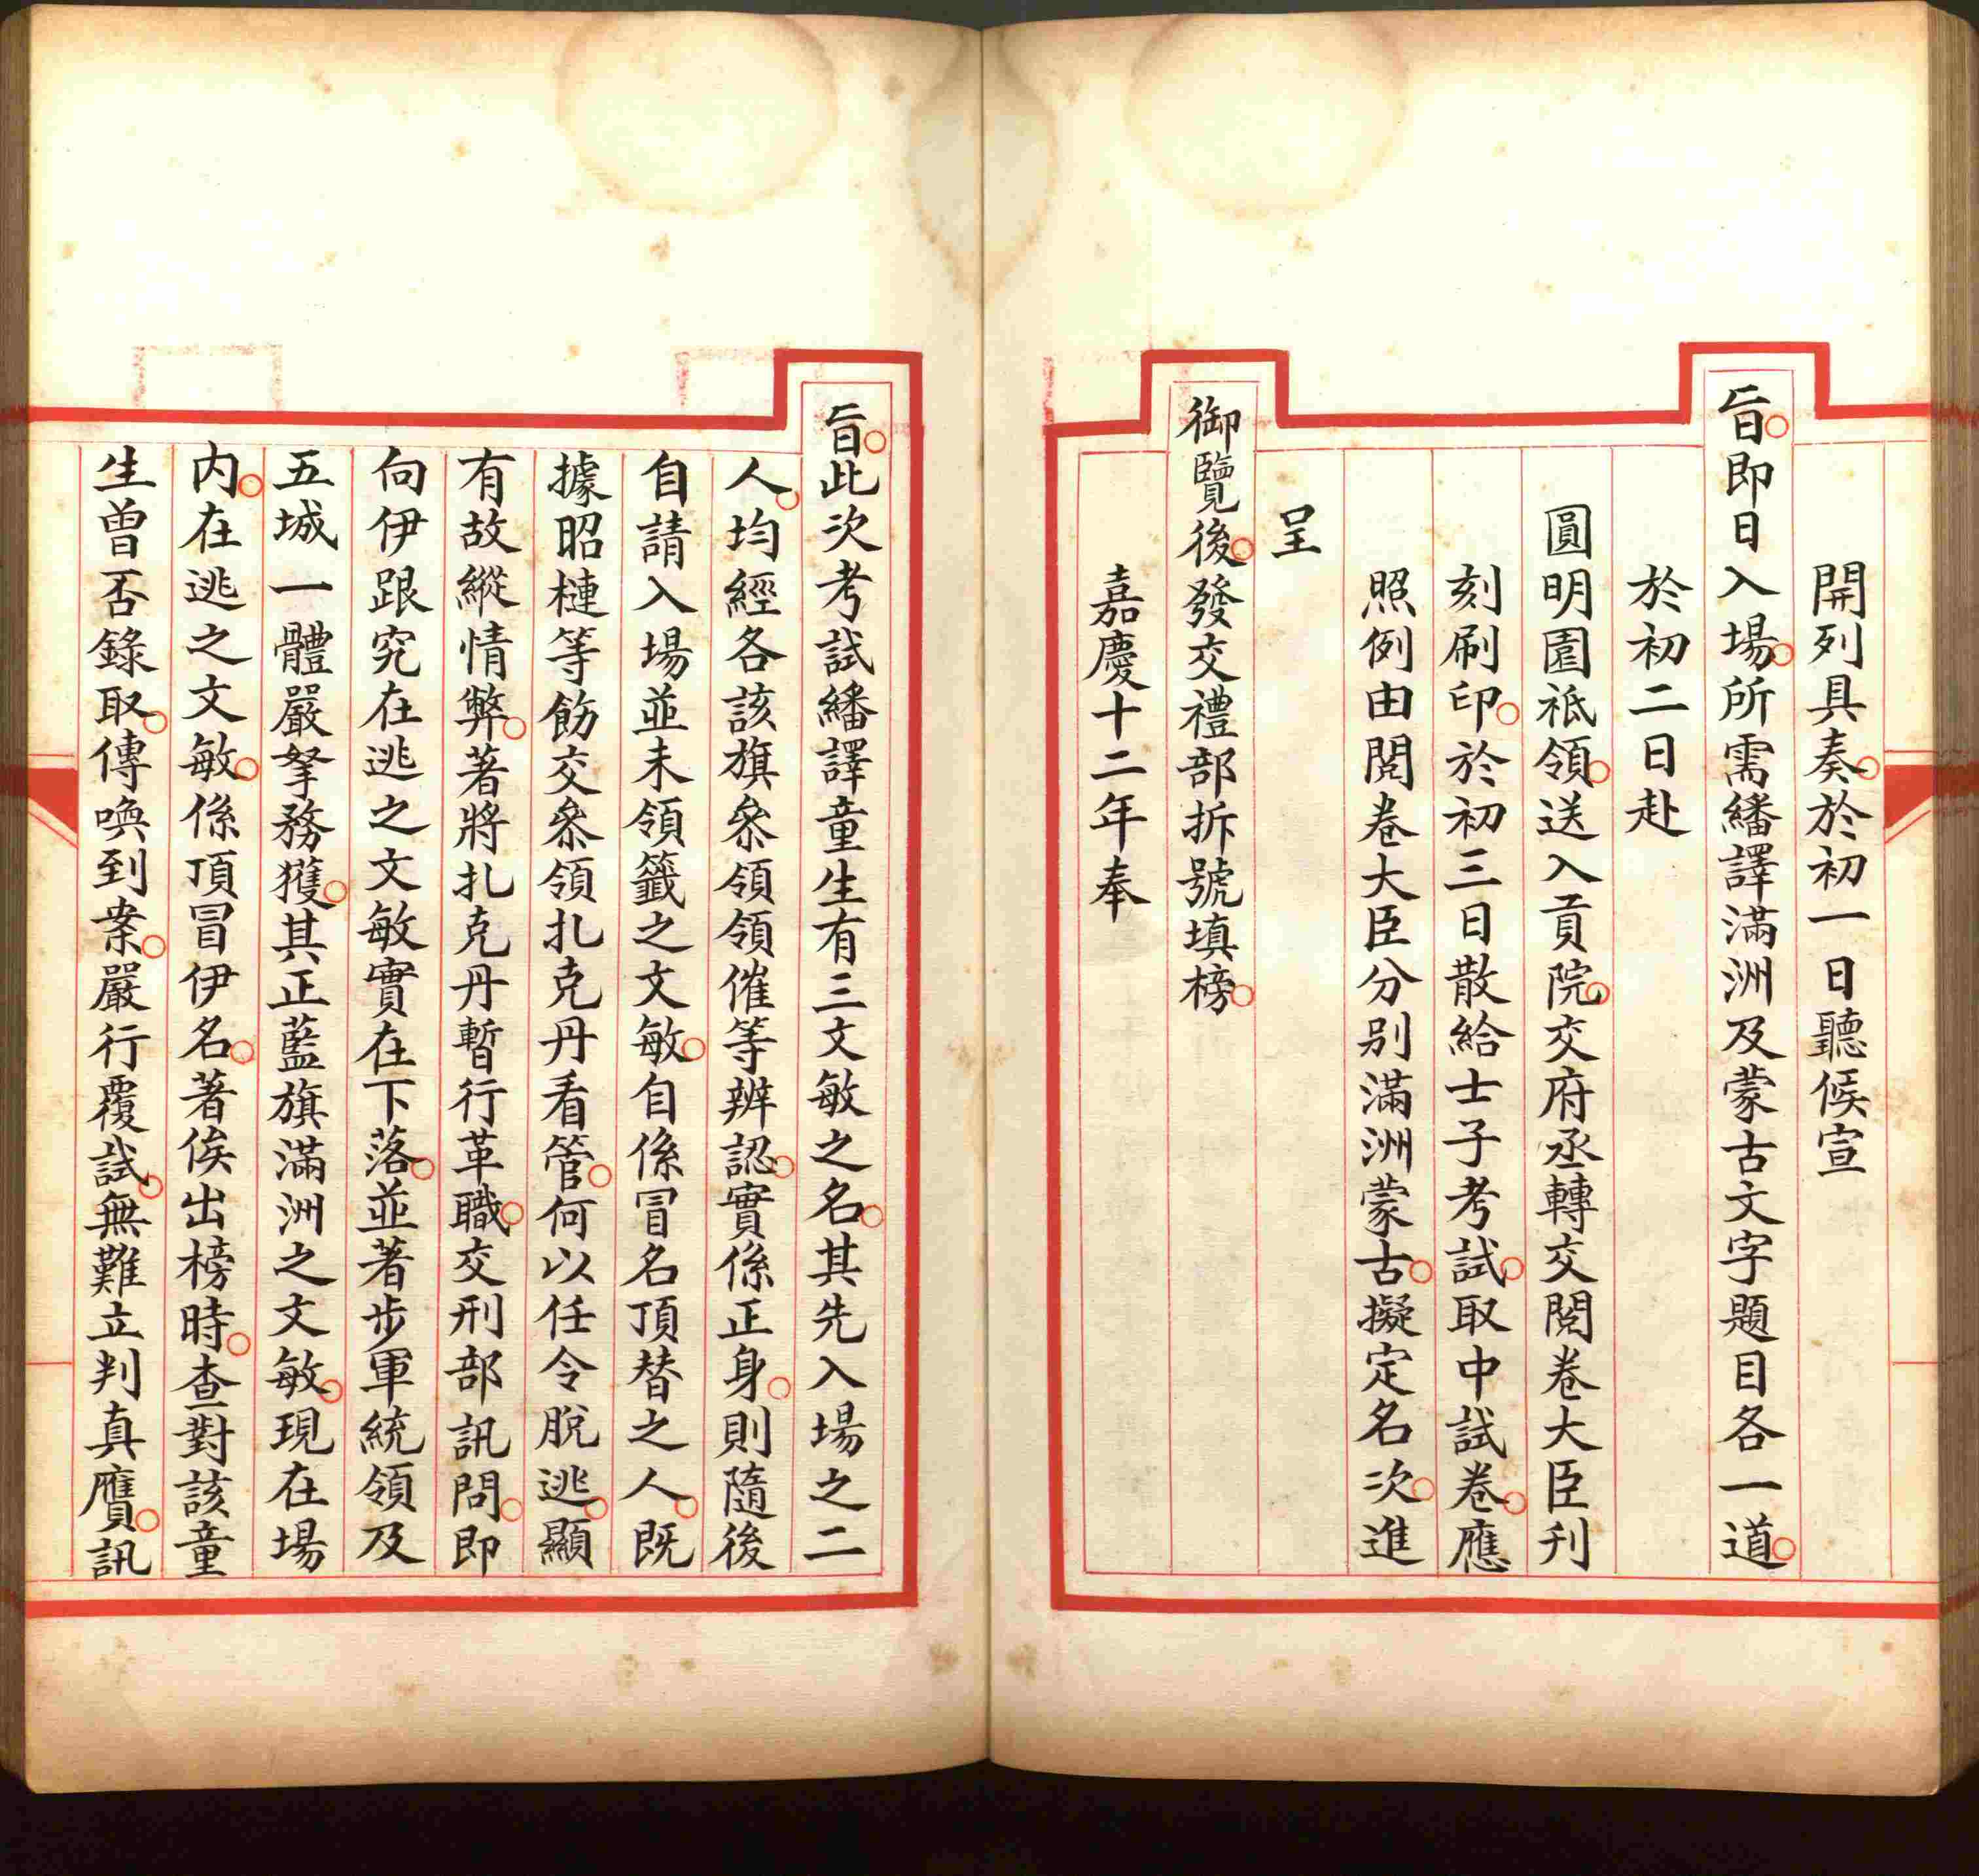 開列具奏於初一日聽候宣
旨即日入場所需繙譯滿洲及蒙古文字題目各一道
於初二日赴
圓明園祗領送入貢院交府丞轉交閱卷大臣刋
刻刷印於初三日散給士子考試取中試卷應
照例由閱卷大臣分别滿洲蒙古擬定名次進
呈
御覽後發交禮部拆號填榜
嘉慶十二年奉
旨此次考試繙譯童生有三文敏之名其先入場之二
人均經各該旗叅領領催等辨認實係正身則隨後
自請入場並未領籤之文敏自係冒名頂替之人既
據昭槤等飭交叅領扎克丹看管何以任令脫逃顯
有故縱情弊著將扎克丹暫行革職交刑部訊問即
向伊跟究在逃之文敏實在下落並著步軍統領及
五城一體嚴拏務獲其正藍旗滿洲之文敏現在場
内在逃之文敏係頂冒伊名著俟出榜時查對該童
生曾否錄取傳喚到案嚴行覆試無難立判真贗訊